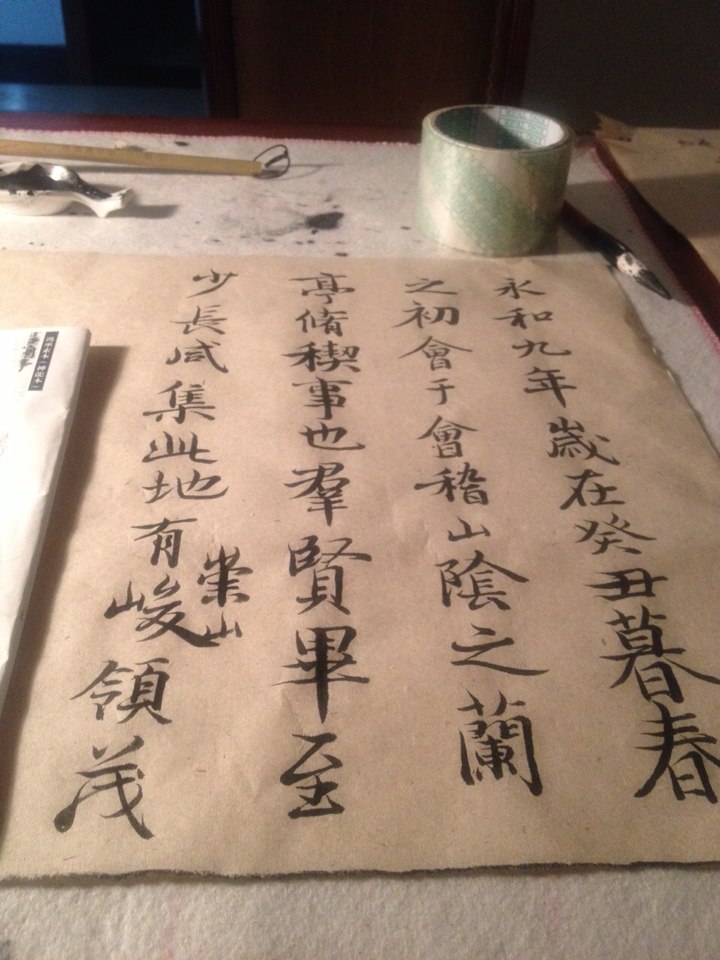 永和九年歲在癸丑暮春
之初會于會稽山陰之蘭
亭脩稧事也羣賢畢至
少長咸集此地有崇山峻領茂